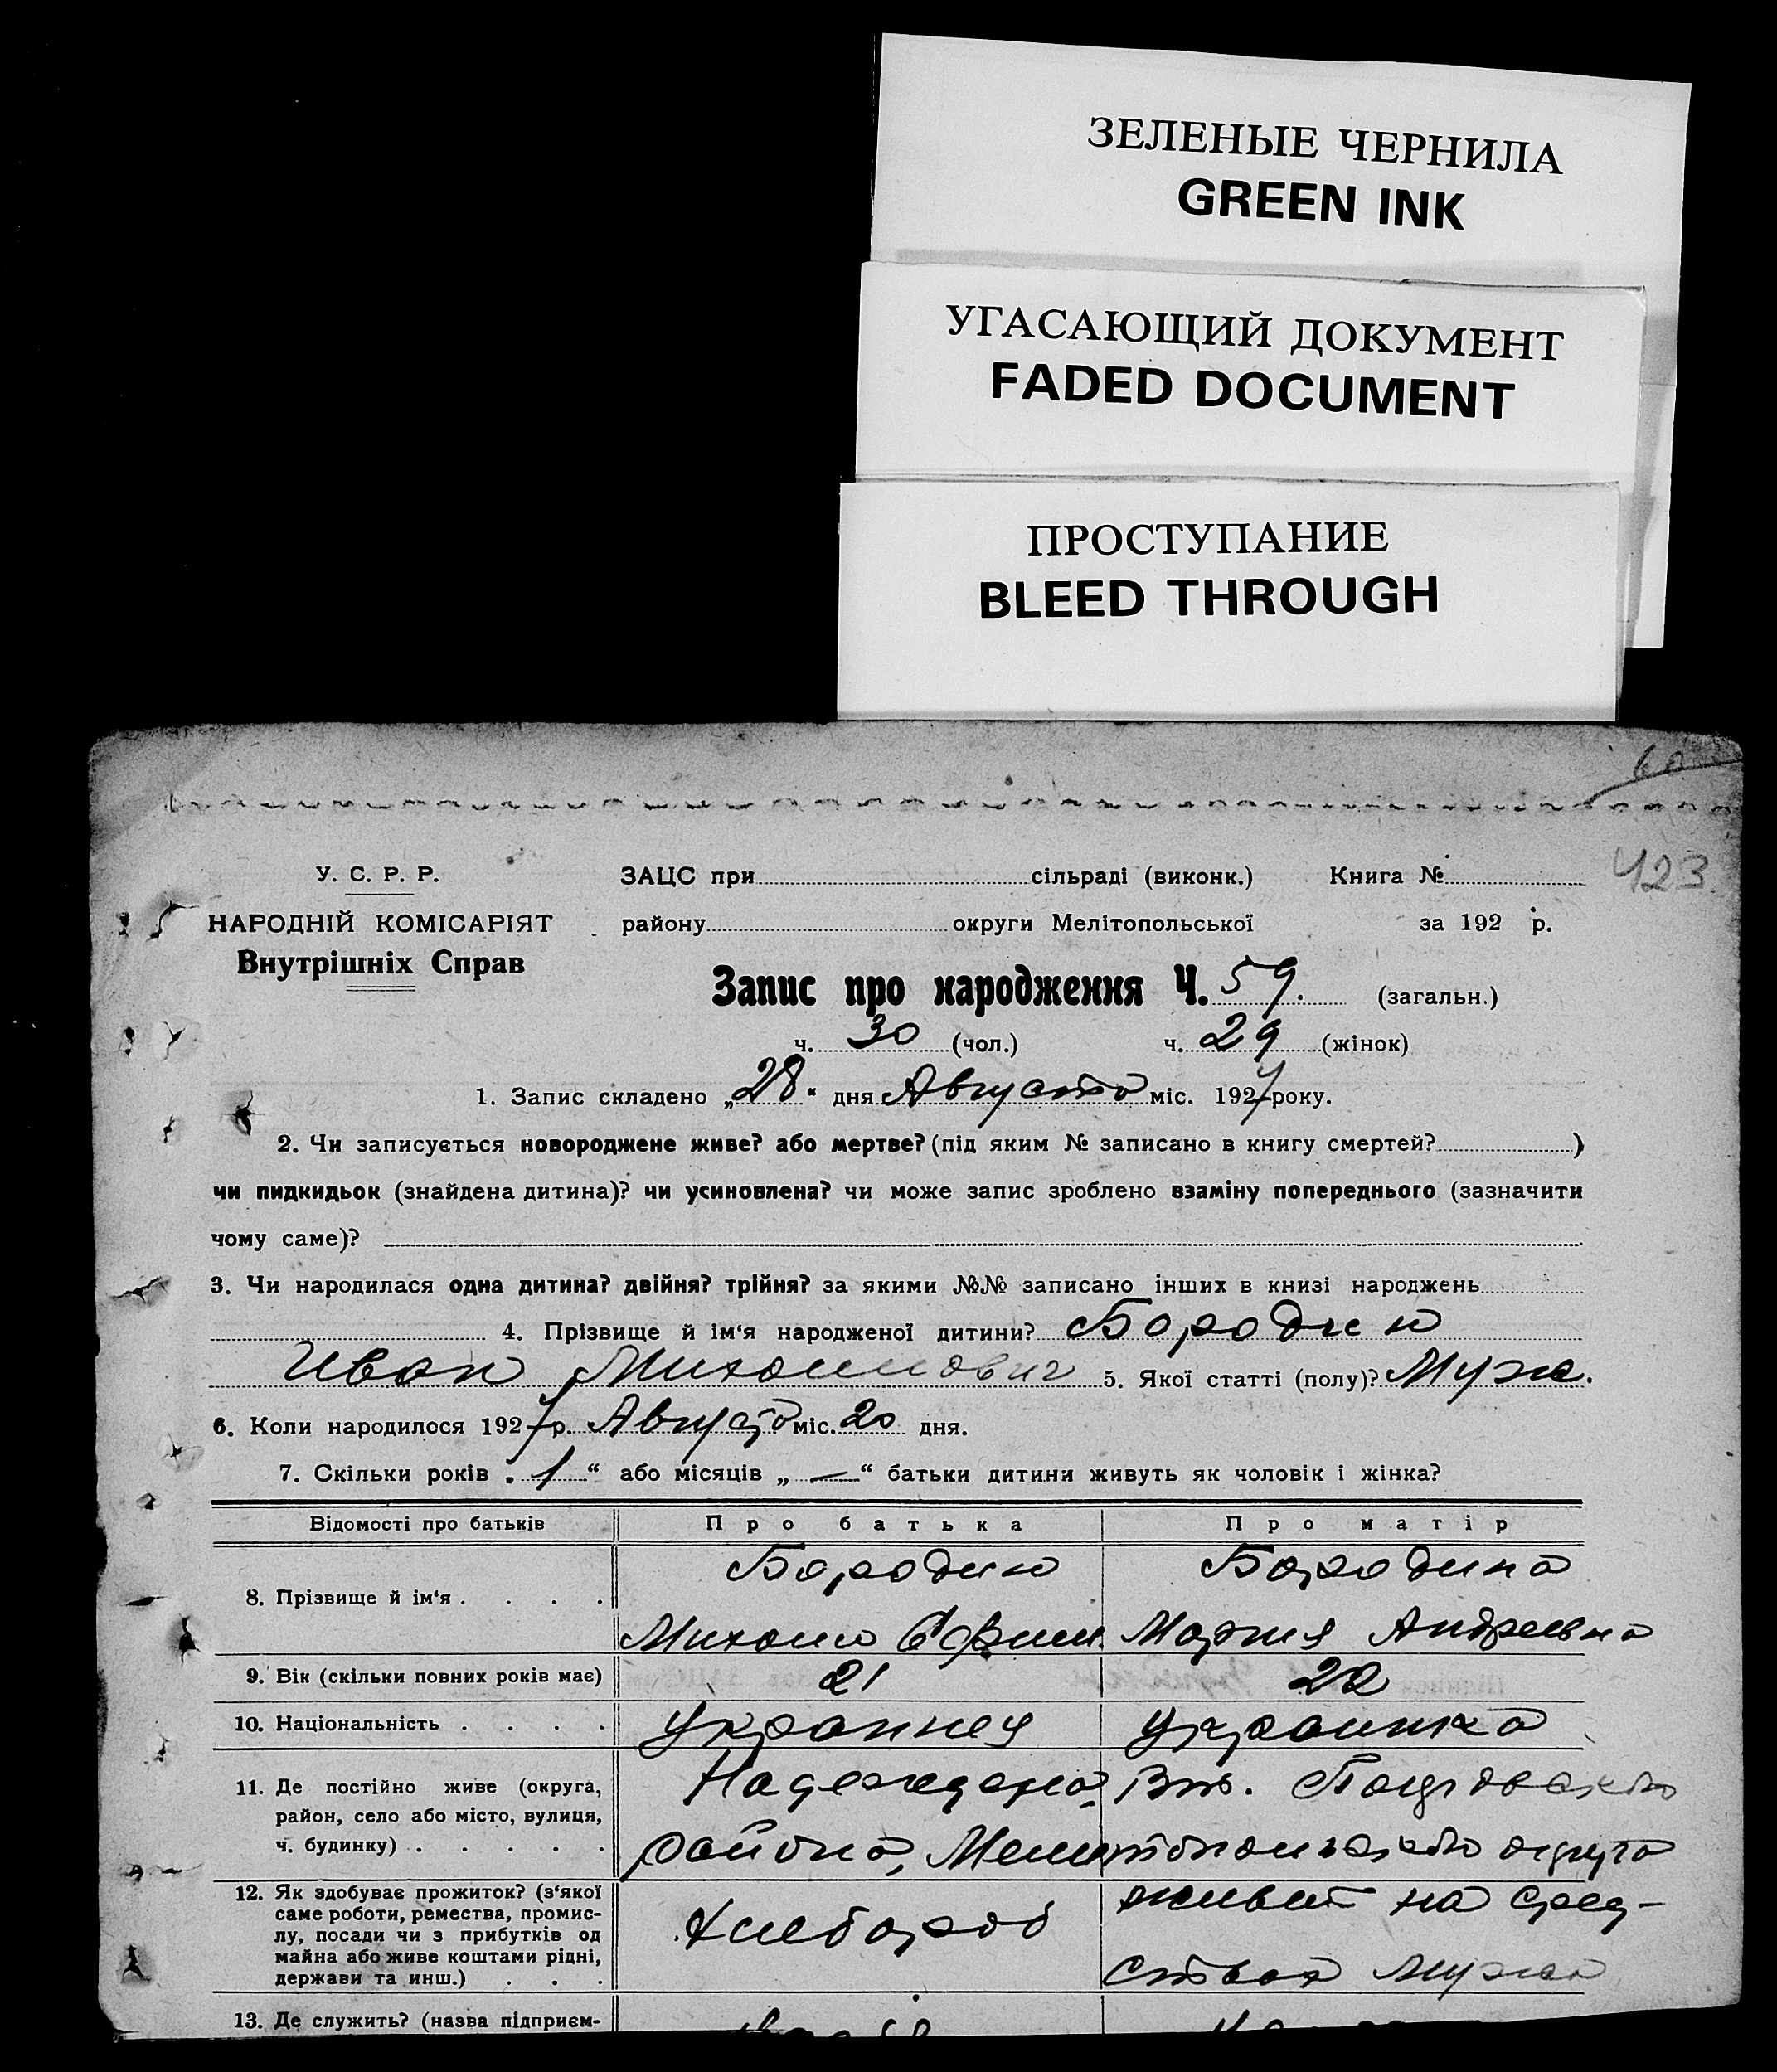 ЗЕЛЕНЫЕ ЧЕРНИЛА
GREEN INK
УГАСАЮЩИЙ ДОКУМЕНТ
FADED DOCUMENT
ПРОСТУПАНИЕ
BLEED THROUGH
423
У. С. Р. Р. ЗАЦС при сільраді (виконк.) Книга №
НАРОДНІЙ КОМІСАРІЯТ району округи Мелітопольської за 192 р.
Внутрішніх Справ
Запис про народження Ч. 59. (загальн.)
ч. 30 (чол.) ч. 29 (жінок)
1. Запис складено „28“ дня Августа міс. 1927 року.
2. Чи записується новороджене живе? або мертве? (під яким № записано в книгу смертей? )
чи пидкидьок (знайдена дитина)? чи усиновлена? чи може запис зроблено взаміну попереднього (зазначити
чому саме)?
3. Чи народилася одна дитина? двійня? трійня? за якими №№ записано інших в книзі народжень
4. Прізвище й ім‘я народженої дитини? Бородин
Иван Михайлович 5. Якої статті (полу)? Муж.
6. Коли народилося 1927 р. Августа міс. 20 дня.
7. Скільки років „1“ або місяців „—“ батьки дитини живуть як чоловік і жінка?
Відомості про батьків Про батька Про матір
8. Прізвище й ім‘я . . . .
Бородин
Михаил Ефим.
Бородина
Мария Андреевна
9. Вік (скільки повних років має) 21 22
10. Національність . . . . Украинец Украинка
11. Де постійно живе (округа,
район, село або місто, вулиця,
ч. будинку) . . . . .
района, Мелитопольского округа
12. Як здобуває прожиток? (з‘якої
саме роботи, ремества, промис-
лу, посади чи з прибутків од
майна або живе коштами рідні,
держави та инш.) . . .
Хлебороб
живет на сред-
ствах мужа
13. Де служить? (назва підприєм-